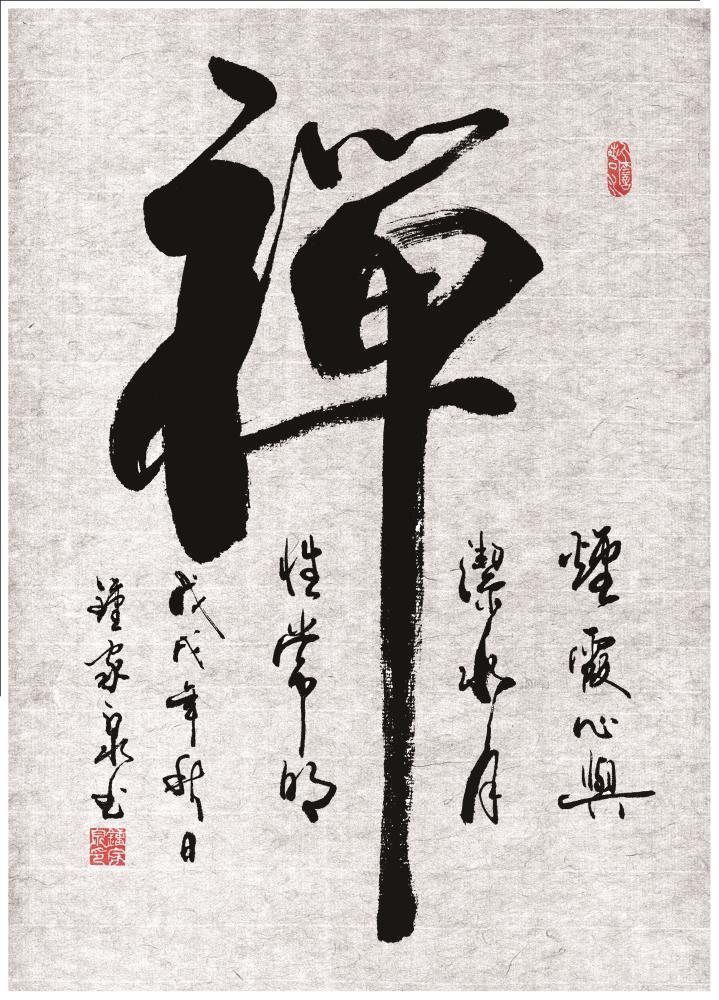 禪
煙霞心興
潔水月
性常明
戊戌年秋日
鍾家泉书
鍾家泉印